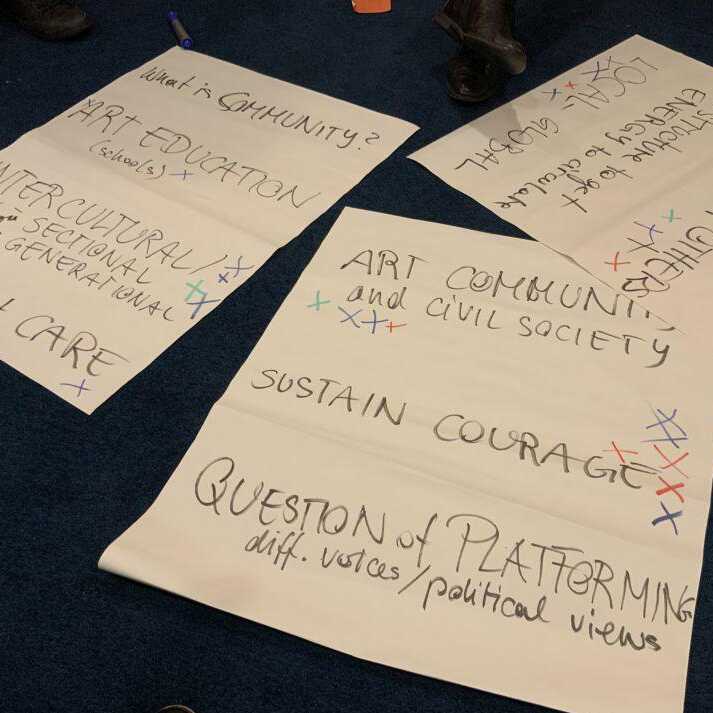 What is COMMUNITY?
ART EDUCATION
(schools)
INTERCULTURAL /
SECTIONAL
GENERATIONAL
CARE
LOCAL - GLOBAL
STRUCTURE to get
ENERGY to circulate
OTHERS
ART COMMUNIT
and CIVIL SOCIETY
SUSTAIN COURAGE
QUESTION of PLATFORMING
diff. voices / political views